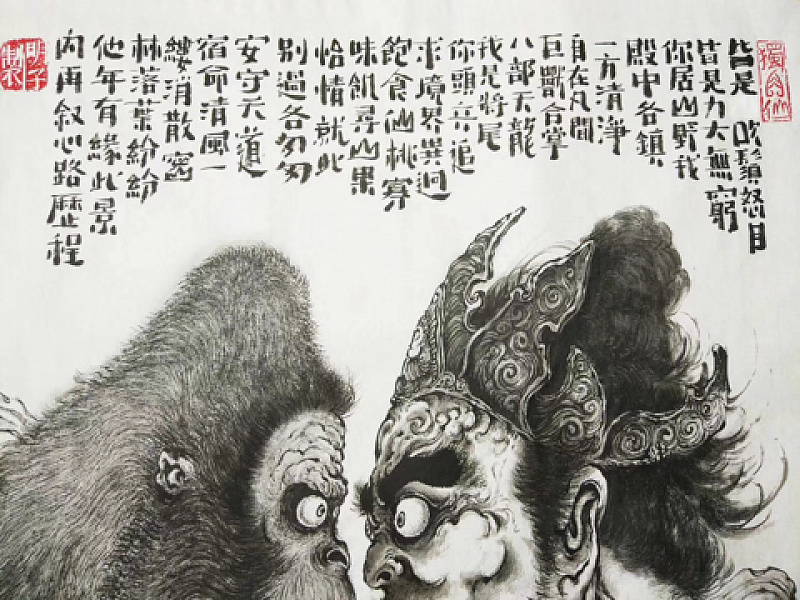 皆是吹鬚怒目
皆見力大無窮
你居山野我
殿中各鎮
一方清淨
自在凡間
巨獸合掌
八部天龍
我是將尾
你頭兵追
求境界異迥
飽食仙桃寡
味飢尋山果
恰情就此
別過各匆匆
安守天道
宿命清風一
縷消散窗
林落葉紛紛
他年有緣此景
內再敘心路歷程